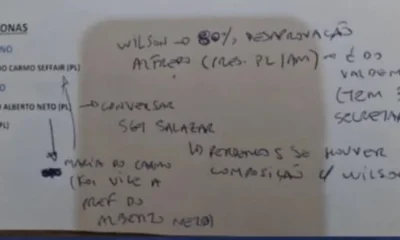 ONAS
NO
DO CARMO SEFFAIR (PL)
O
O ALBERTO NETO (PL)
PL)
WILSON → 80% DESAPROVAÇÃO
ALFREDO (PRES. PL/AM) → É DO
VALDEM
(TEM 3
SECRETAR
→ CONVERSAR
SGT SALAZAR
MARIA DO CARMO
(FOI VICE A
PREF DO
ALBERTO NETO)
↳ PERDEMOS SE HOUVER
COMPOSIÇÃO C/ WILSO